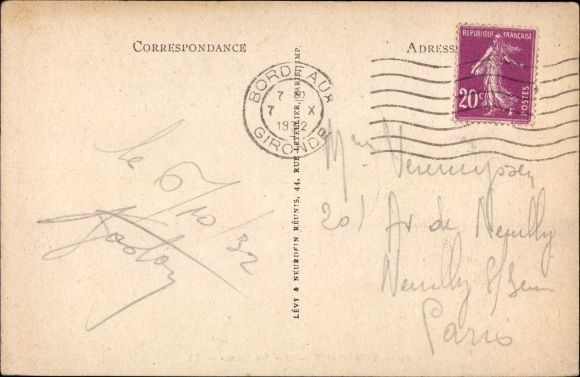 CORRESPONDANCE
ADRESSE
REPUBLIQUE FRANÇAISE
20c
POSTES
BORDEAUX
7
7 X
1932
GIRONDE
LÉVY & NEURDEIN RÉUNIS, 44, RUE LETELLIER, PARIS IMP.
Le 6/10/32
20, Av de Neuilly
Neuilly s/ Seine
Paris